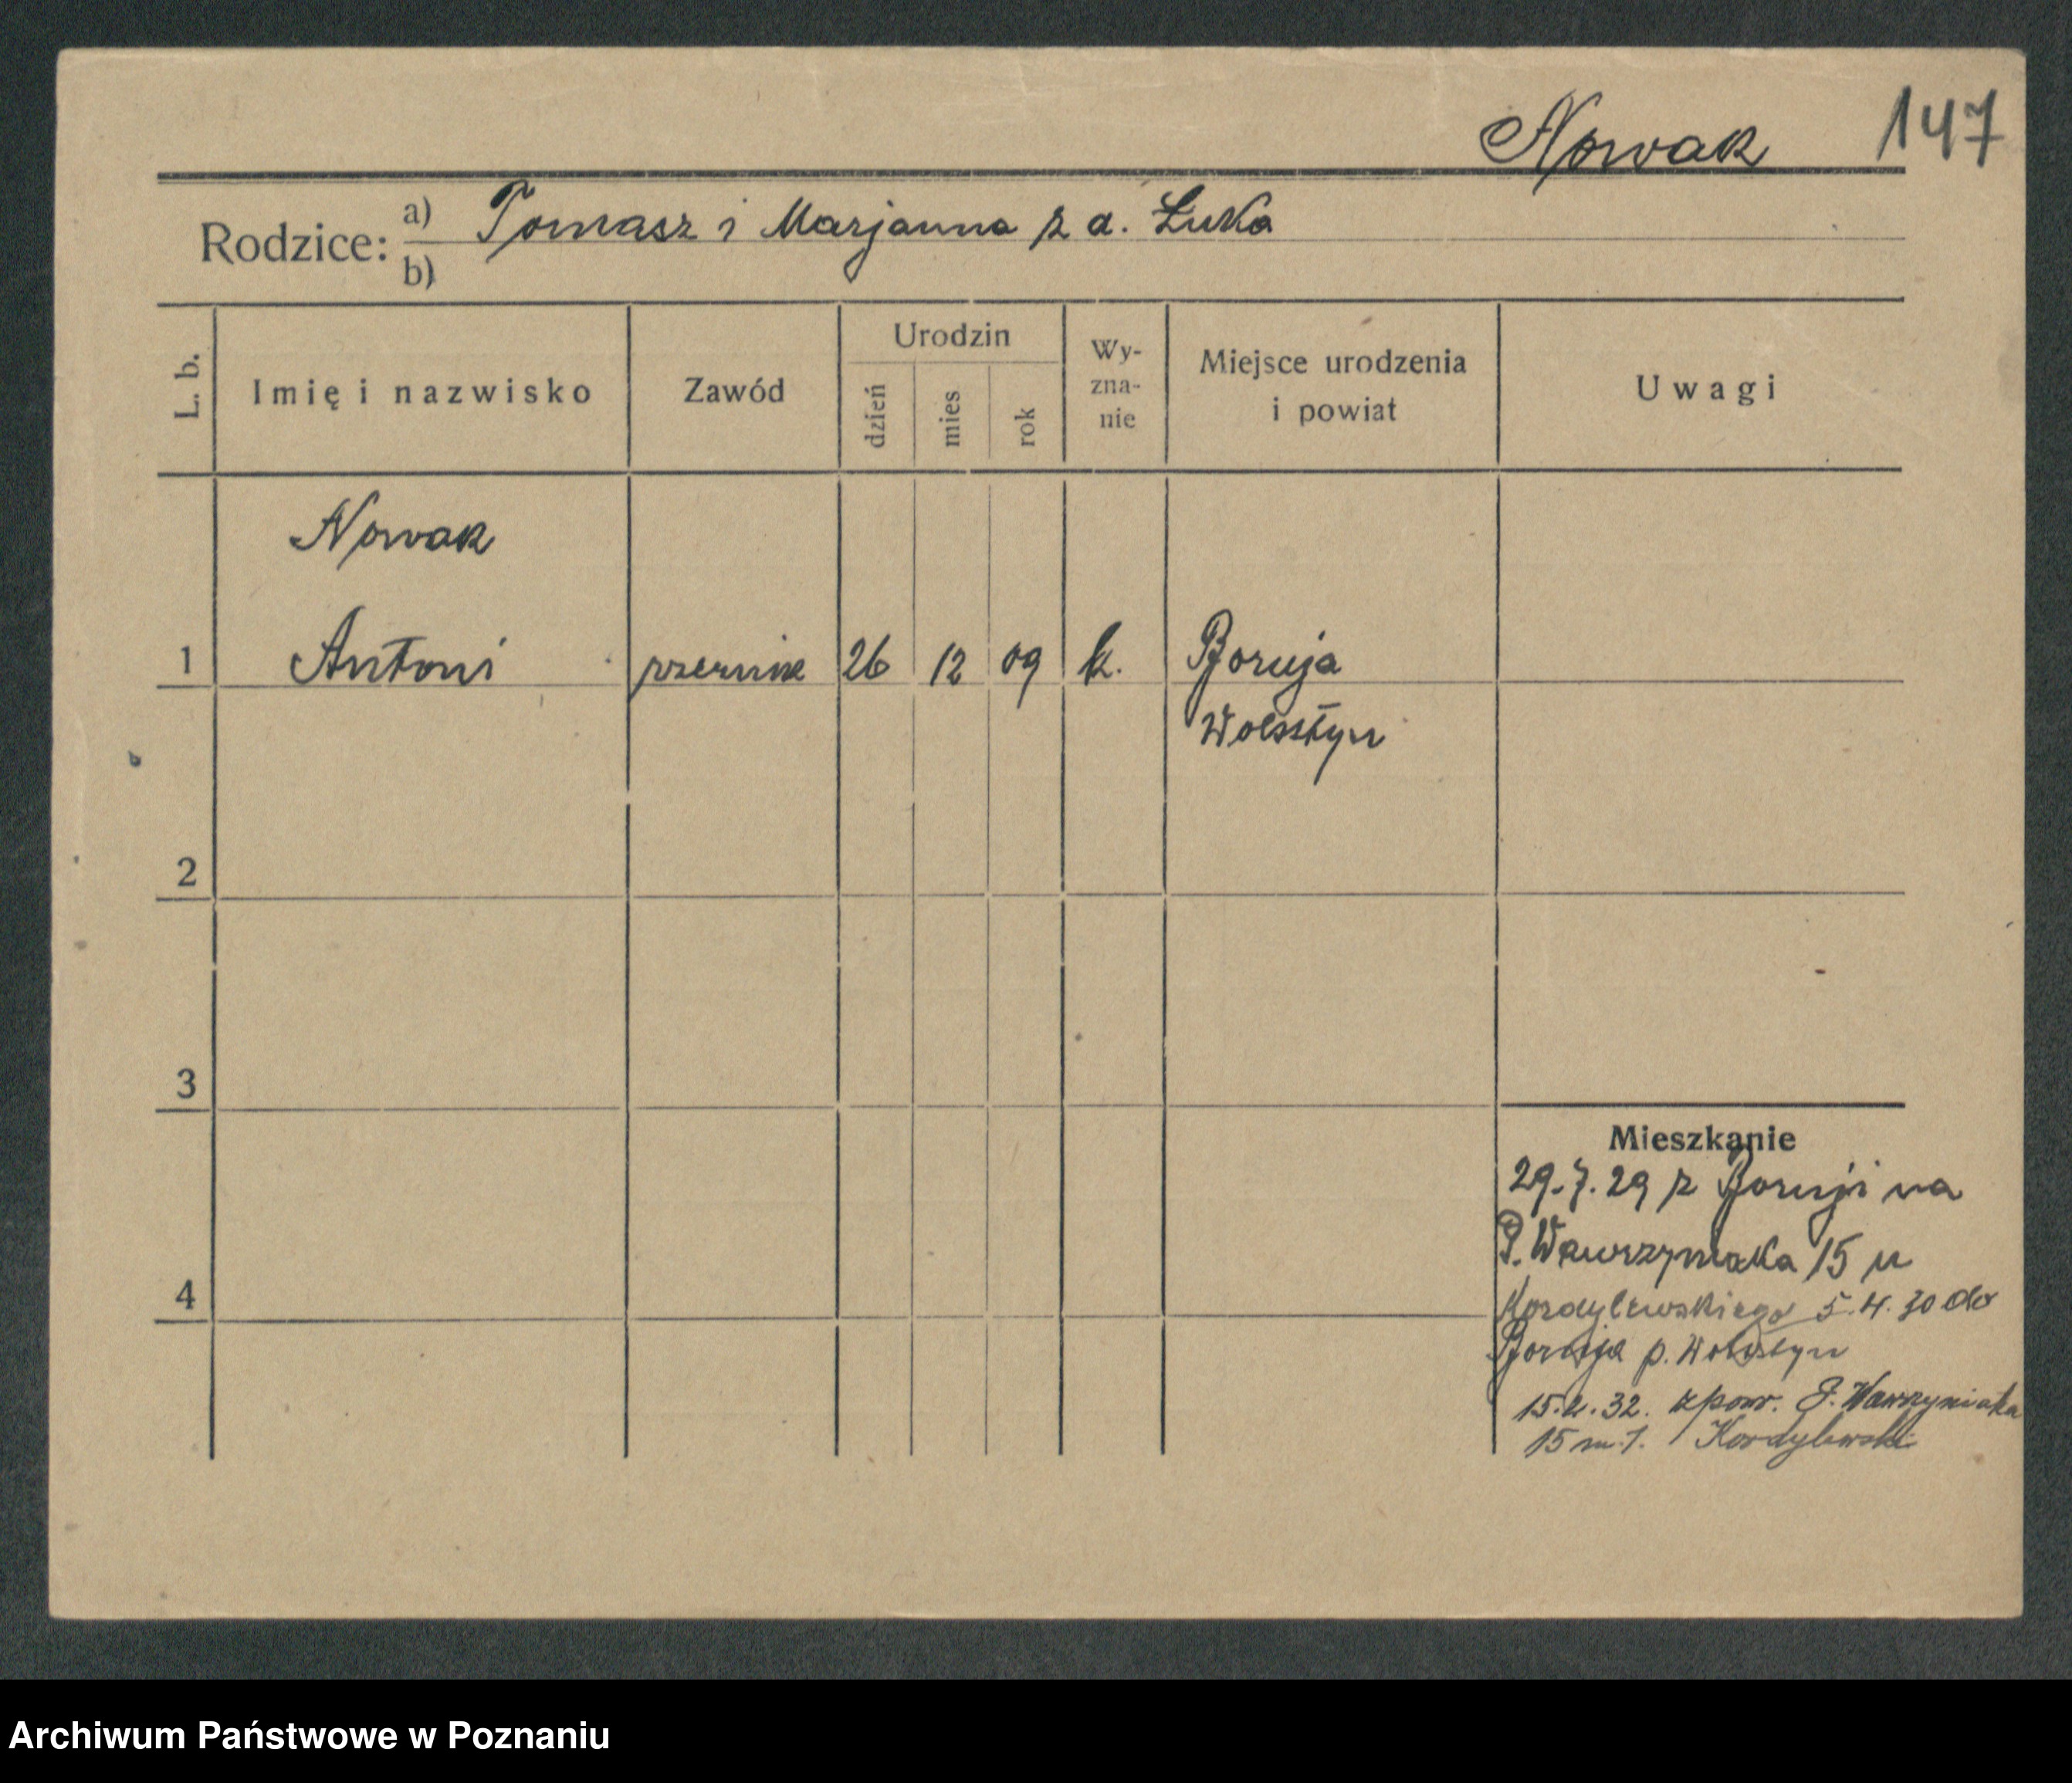 Nowak 147
Rodzice: a) Tomasz i Marjanna z d. Łuka
b)
L. b. Imię i nazwisko Zawód Urodzin dzień mies rok Wy-zna-nie Miejsce urodzenia i powiat Uwagi
Nowak
1 Antoni 26 12 09 k. Boruja
Wolsztyn
2
3
Mieszkanie
29.7.29 z Boruji na
P. Wawrzyniaka 15 u
4
Kordylewskiego 5.4.30 do
Boruja p. Wolsztyn
15.2.32. z pow. P. Wawrzyniaka
15 m.1. Kordylewski
Archiwum Państwowe w Poznaniu